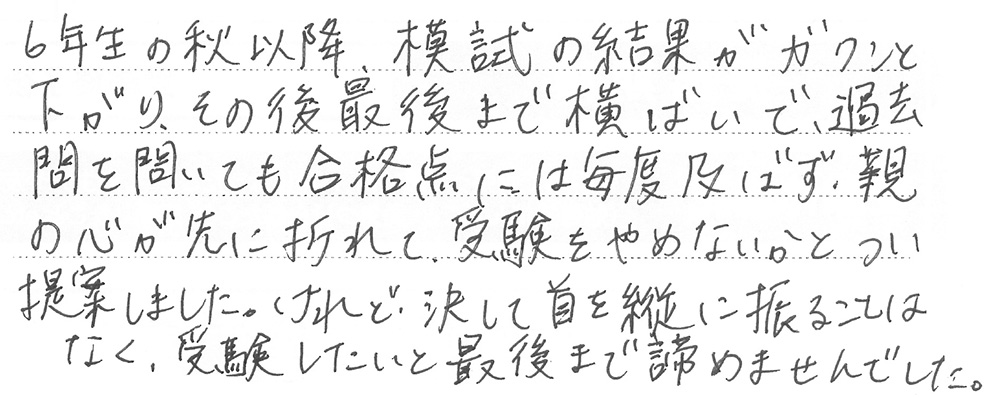 6年生の秋以降、模試の結果がガクンと
下がり、その後最後まで横ばいで、過去
問を問いても合格点には毎度及ばず、親
の心が先に折れて、受験をやめないかとつい
提案しました。けれど、決して首を縦に振ることは
なく、受験したいと最後まで諦めませんでした。